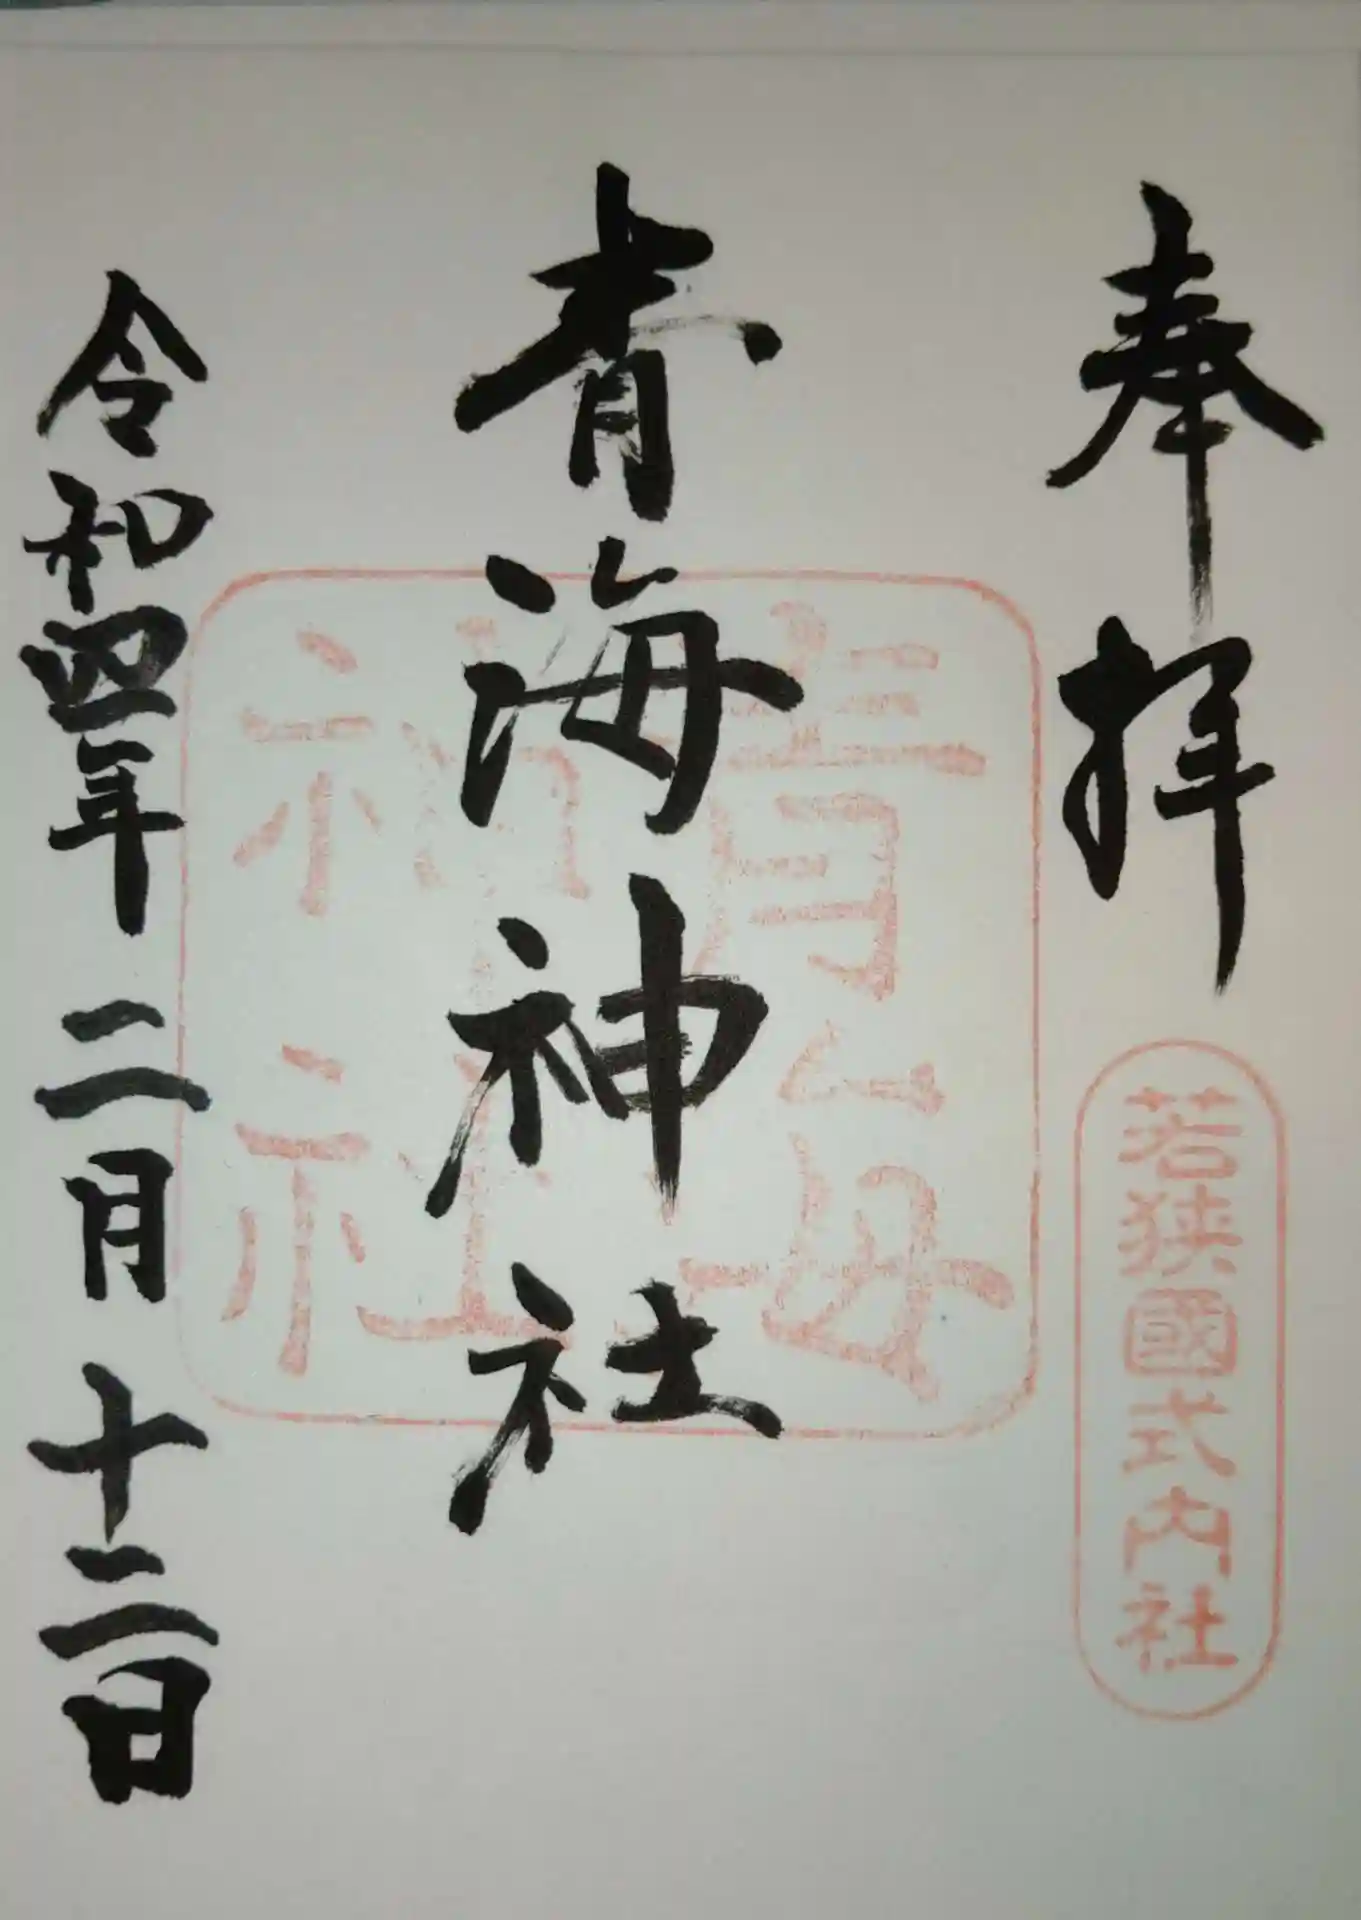 奉拝
若狭國式内社
青海神社
青海
神社
令和四年二月十二日